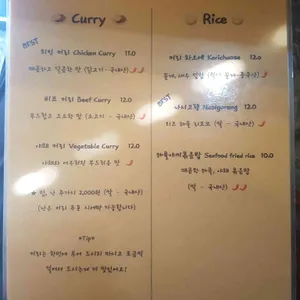 Curry
BEST
치킨 커리 Chicken Curry 11.0
매콤하고 달콤한 맛 (닭고기 - 국내산)
비프 커리 Beef Curry 12.0
부드럽고 고소한 맛 (소고기 - 국내산)
야채 커리 Vegetable Curry 12.0
야채가 어우러진 부드러운 맛
★ 밥, 난 추가시 2,000원 (쌀 - 국내산)
(난은 커리 주문 시에만 가능합니다)
*Tip*
커리는 한번에 부어 드시지 마시고 조금씩
덜어서 드시는게 더 맛있어요!
Rice
커리 하오새 Karichaose 12.0
BEST
나시고랭 Nasigoreng 12.0
(쌀 - 국내산)
해물야채볶음밥 Seafood fried rice 10.0
매콤한 해물, 야채 볶음밥
(쌀 - 국내산)